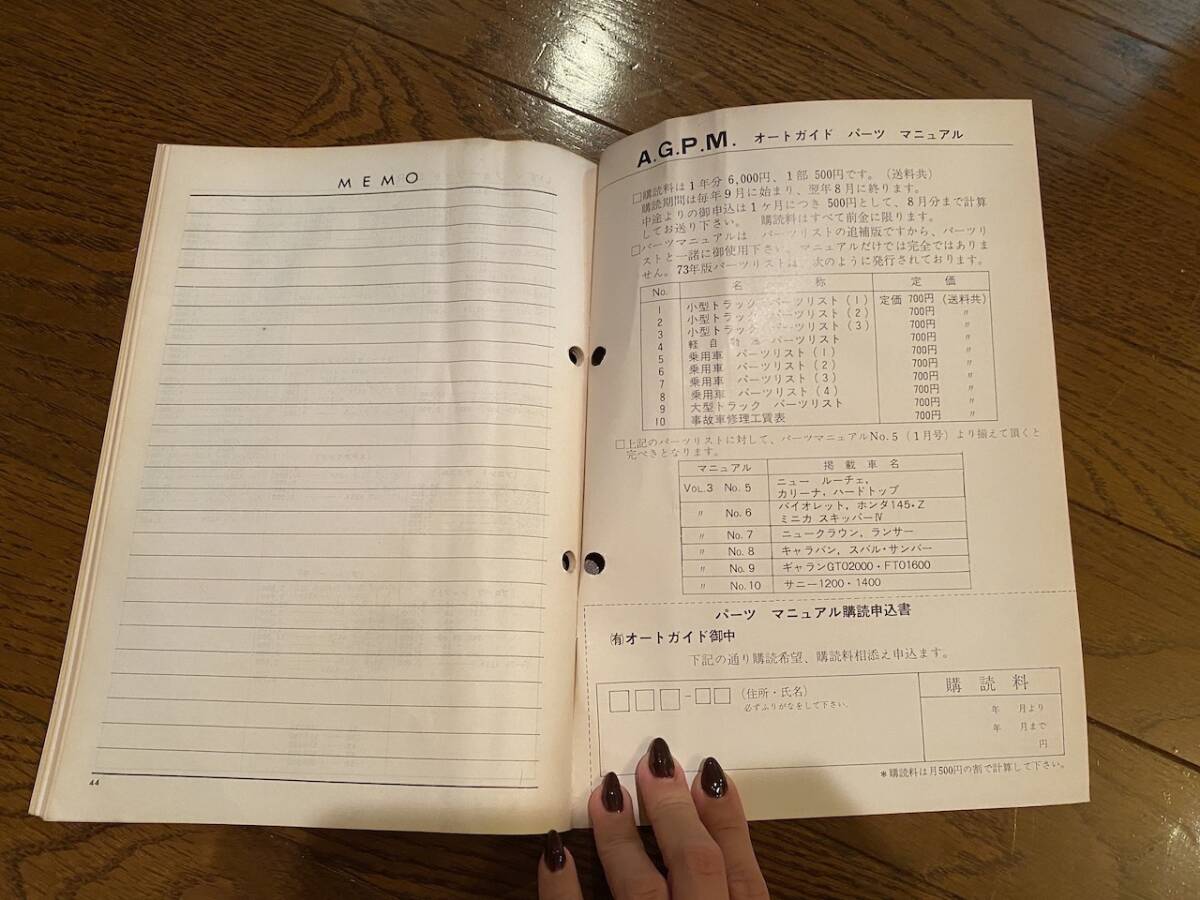 MEMO
44
A.G.P.M. オートガイド パーツ マニュアル
□購読料は1年分6,000円、1部500円です。(送料共)
購読期間は毎年9月に始まり、翌年8月に終ります。
中途よりの御申込は1ケ月につき500円として、8月分まで計算
してお送り下さい。 購読料はすべて前金に限ります。
□パーツマニュアルは パーツリストの追補版ですから、パーツリ
ストと一諸に御使用下さい。マニュアルだけでは完全ではありま
せん。73年版パーツリストは、次のように発行されております。
No. 名 称 定 価
1 小型トラック パーツリスト(1) 定価 700円 (送料共)
2 小型トラック パーツリスト(2) 700円 〃
3 小型トラック パーツリスト(3) 700円 〃
4 軽自 パーツリスト 700円 〃
5 乗用車 パーツリスト(1) 700円 〃
6 乗用車 パーツリスト(2) 700円 〃
7 乗用車 パーツリスト(3) 700円 〃
8 乗用車 パーツリスト(4) 700円 〃
9 大型トラック パーツリスト 700円 〃
10 事故車修理工賃表 700円 〃
□上記のパーツリストに対して、パーツマニュアルNo.5(1月号)より揃えて頂くと
完ぺきとなります。
マニュアル 掲載車名
VOL.3 No.5 ニュー ルーチェ,
カリーナ,ハードトップ
〃 No.6 バイオレット,ホンダ145・Z
ミニカ スキッパーⅣ
〃 No.7 ニュークラウン,ランサー
〃 No.8 キャラバン,スバル・サンバー
〃 No.9 ギャランGTO2000・FTO1600
〃 No.10 サニー1200・1400
パーツ マニュアル購読申込書
㈲オートガイド御中
下記の通り購読希望、購読料相添え申込ます。
□□□-□□ (住所・氏名)
必ずふりがなをして下さい。
購読料
年 月より
年 月まで
円
*購読料は月500円の割で計算して下さい。